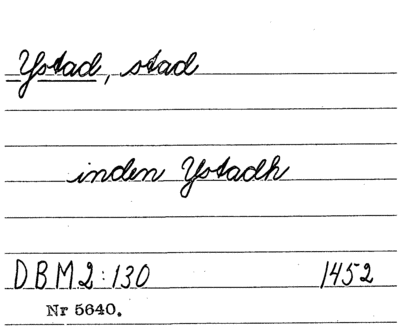 Ystad, stad
inden Ystadh
DBM 2:130 1452
Nr 5640.